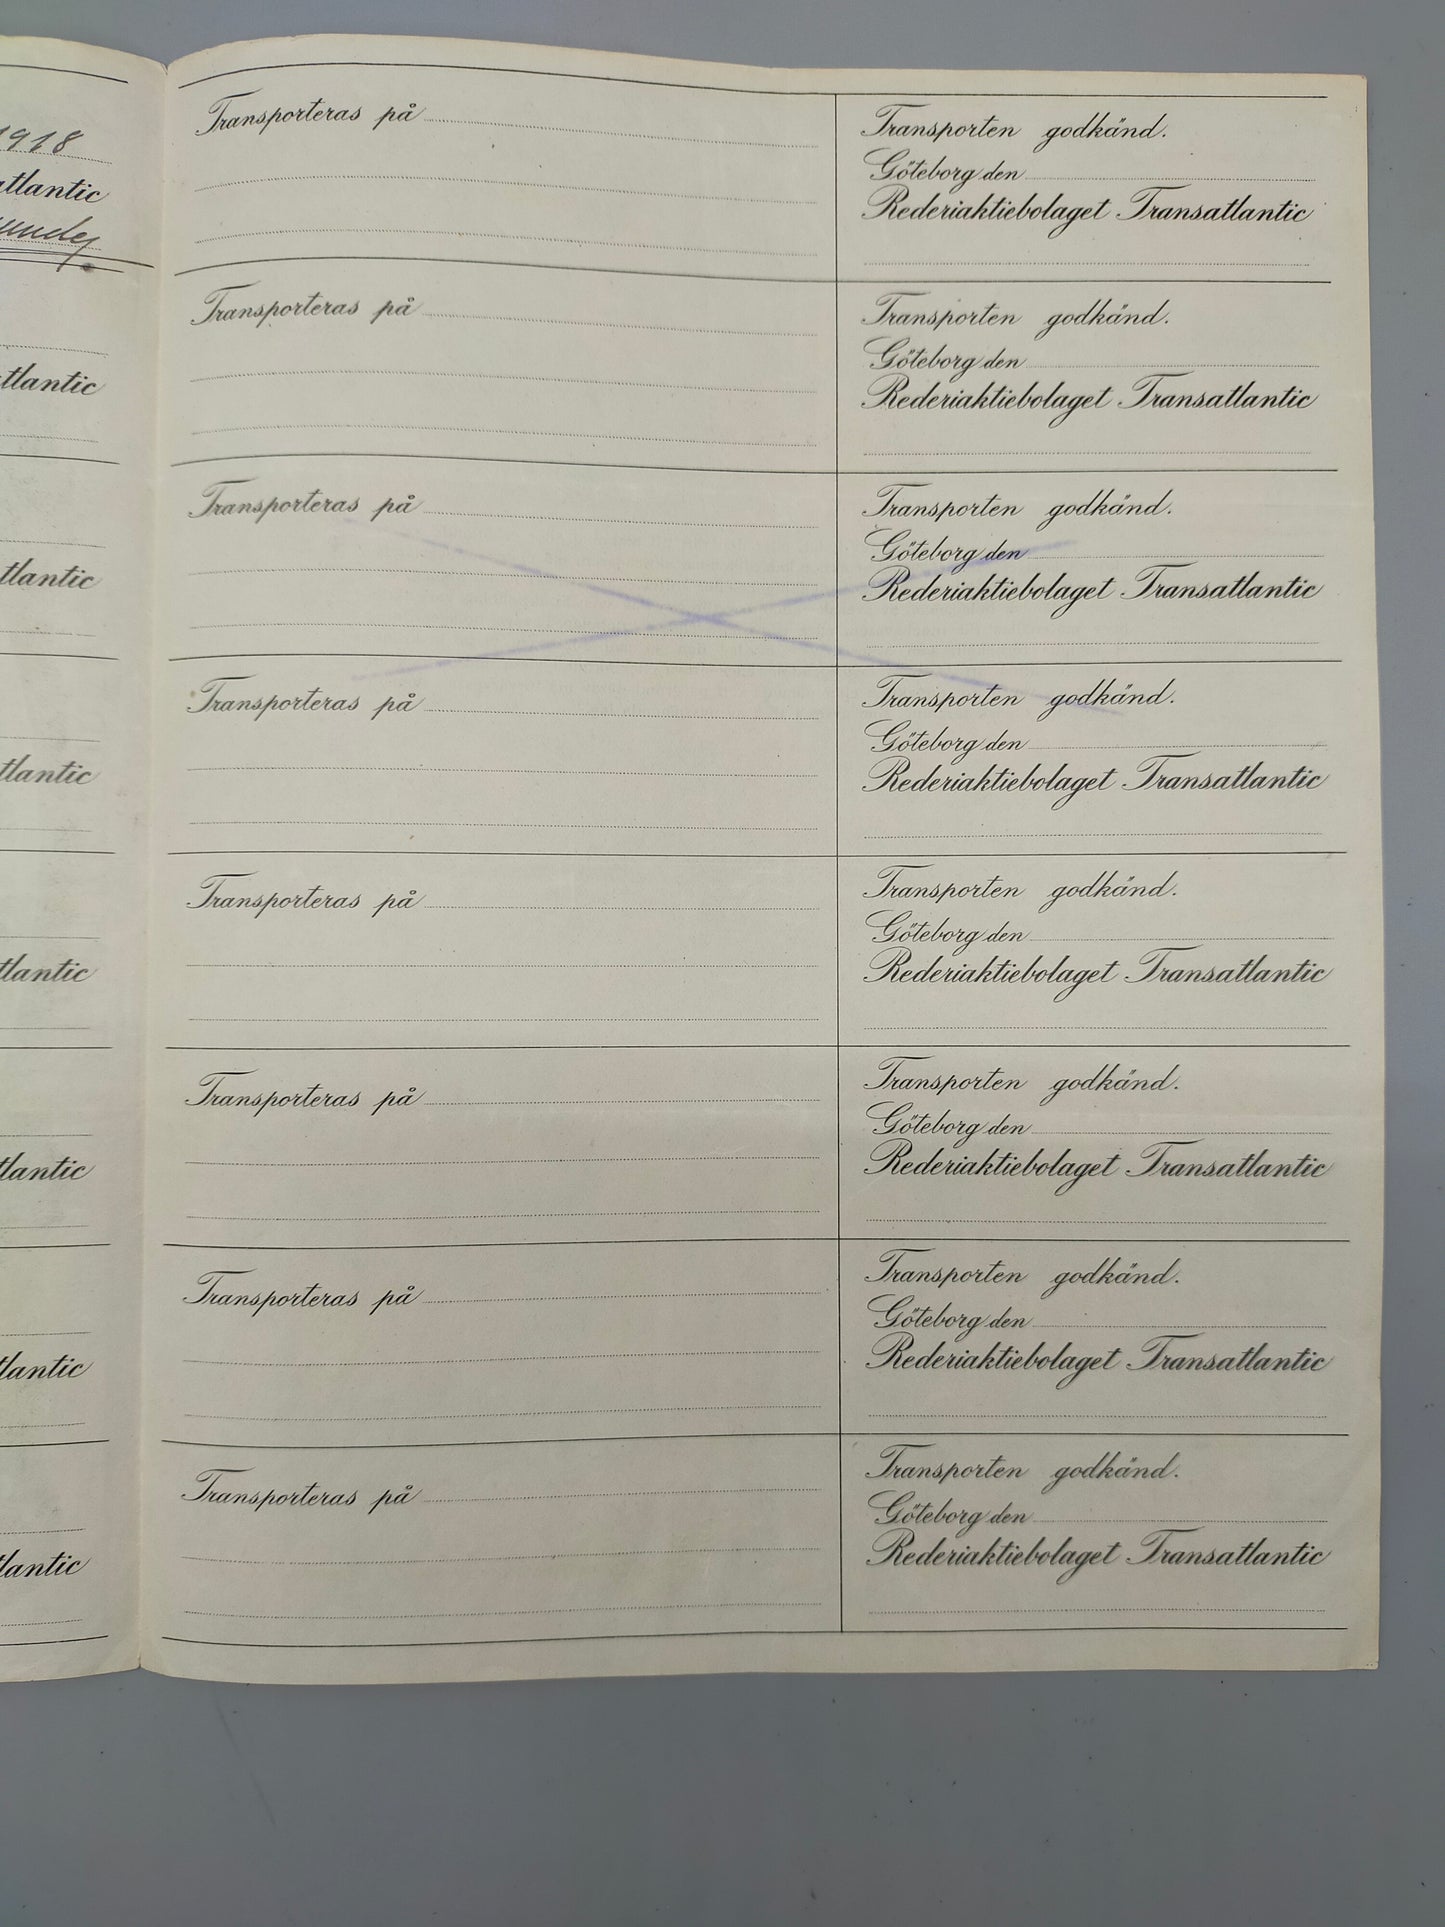 1918
atlantic
tlantic
tlantic
tlantic
tlantic
tlantic
tlantic
tlantic
Transporteras på
Transporten godkänd.
Göteborg den
Rederiaktiebolaget Transatlantic
Transporteras på
Transporten godkänd.
Göteborg den
Rederiaktiebolaget Transatlantic
Transporteras på
Transporten godkänd.
Göteborg den
Rederiaktiebolaget Transatlantic
Transporteras på
Transporten godkänd.
Göteborg den
Rederiaktiebolaget Transatlantic
Transporteras på
Transporten godkänd.
Göteborg den
Rederiaktiebolaget Transatlantic
Transporteras på
Transporten godkänd.
Göteborg den
Rederiaktiebolaget Transatlantic
Transporteras på
Transporten godkänd.
Göteborg den
Rederiaktiebolaget Transatlantic
Transporteras på
Transporten godkänd.
Göteborg den
Rederiaktiebolaget Transatlantic